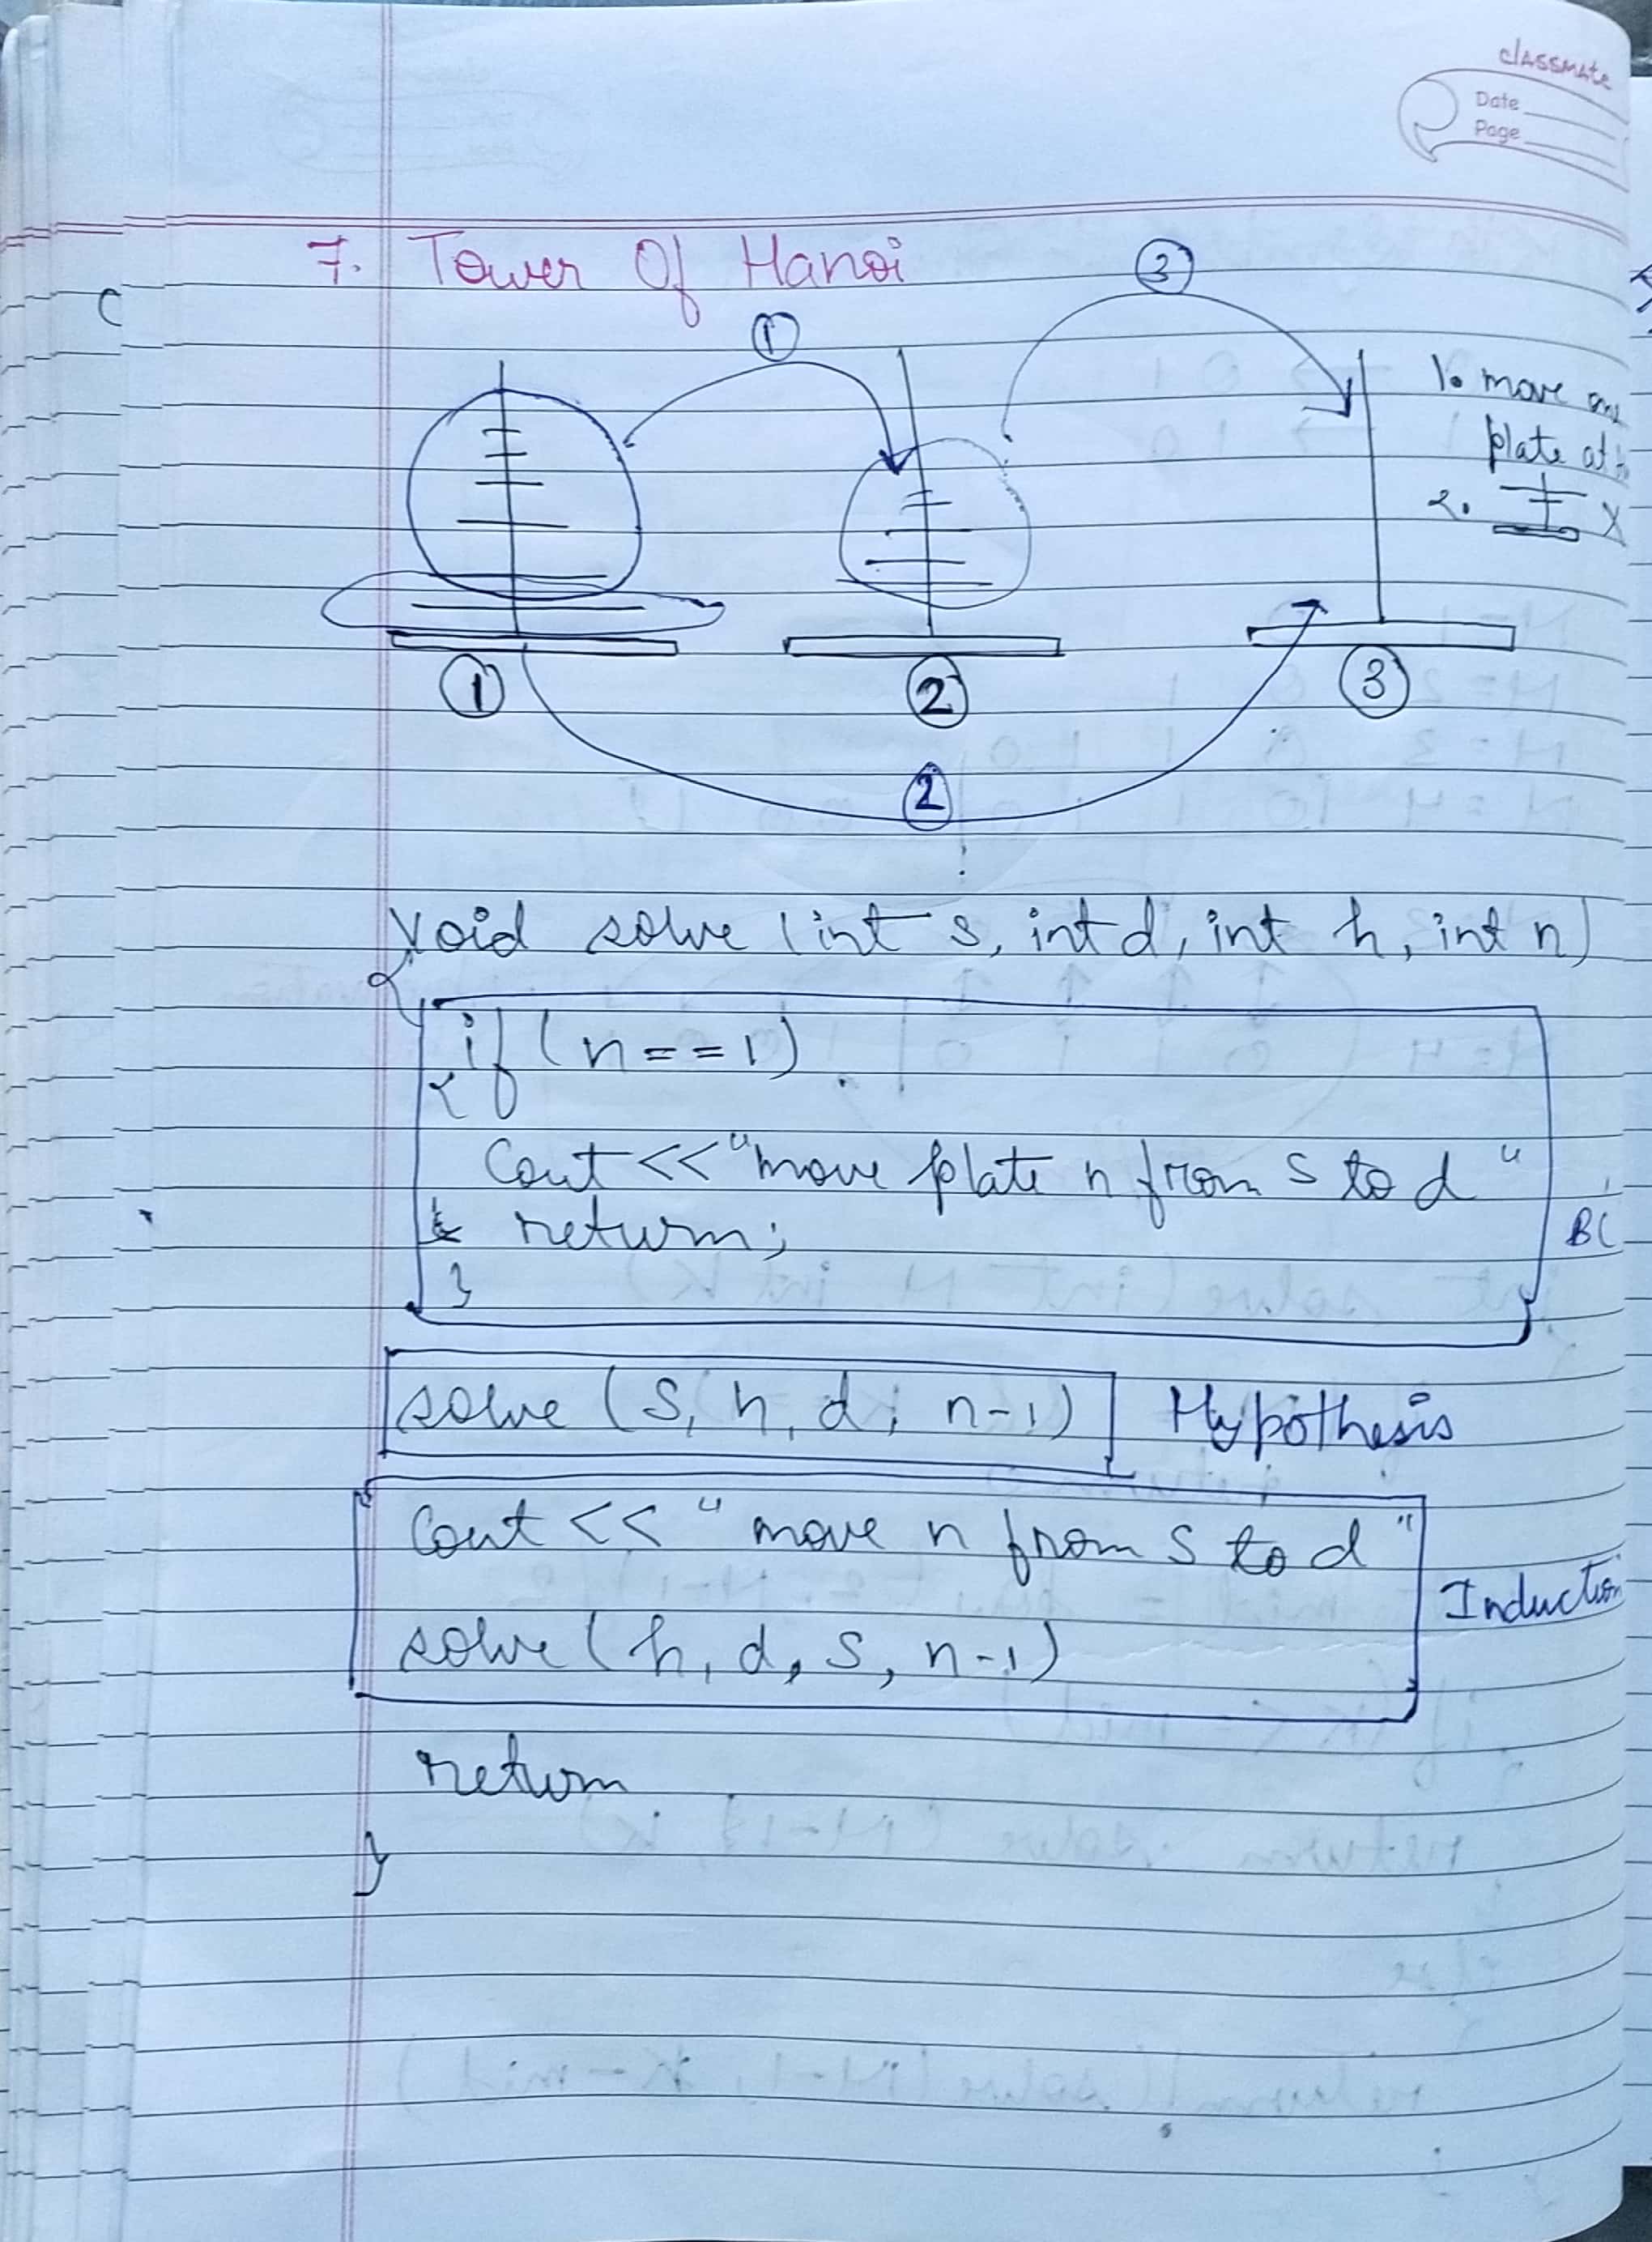 classmate
Date
Page
7. Tower Of Hanoi
①
③
1. move one
plate at
2. X
① ② ③
②
void solve (int s, int d, int h, int n)
{
if (n==1)
{
Cout <<"move plate n from s to d"
return;
}
BC
solve (s, h, d, n-1) Hypothesis
Cout << "move n from s to d"
solve (h, d, s, n-1)
Induction
return
}